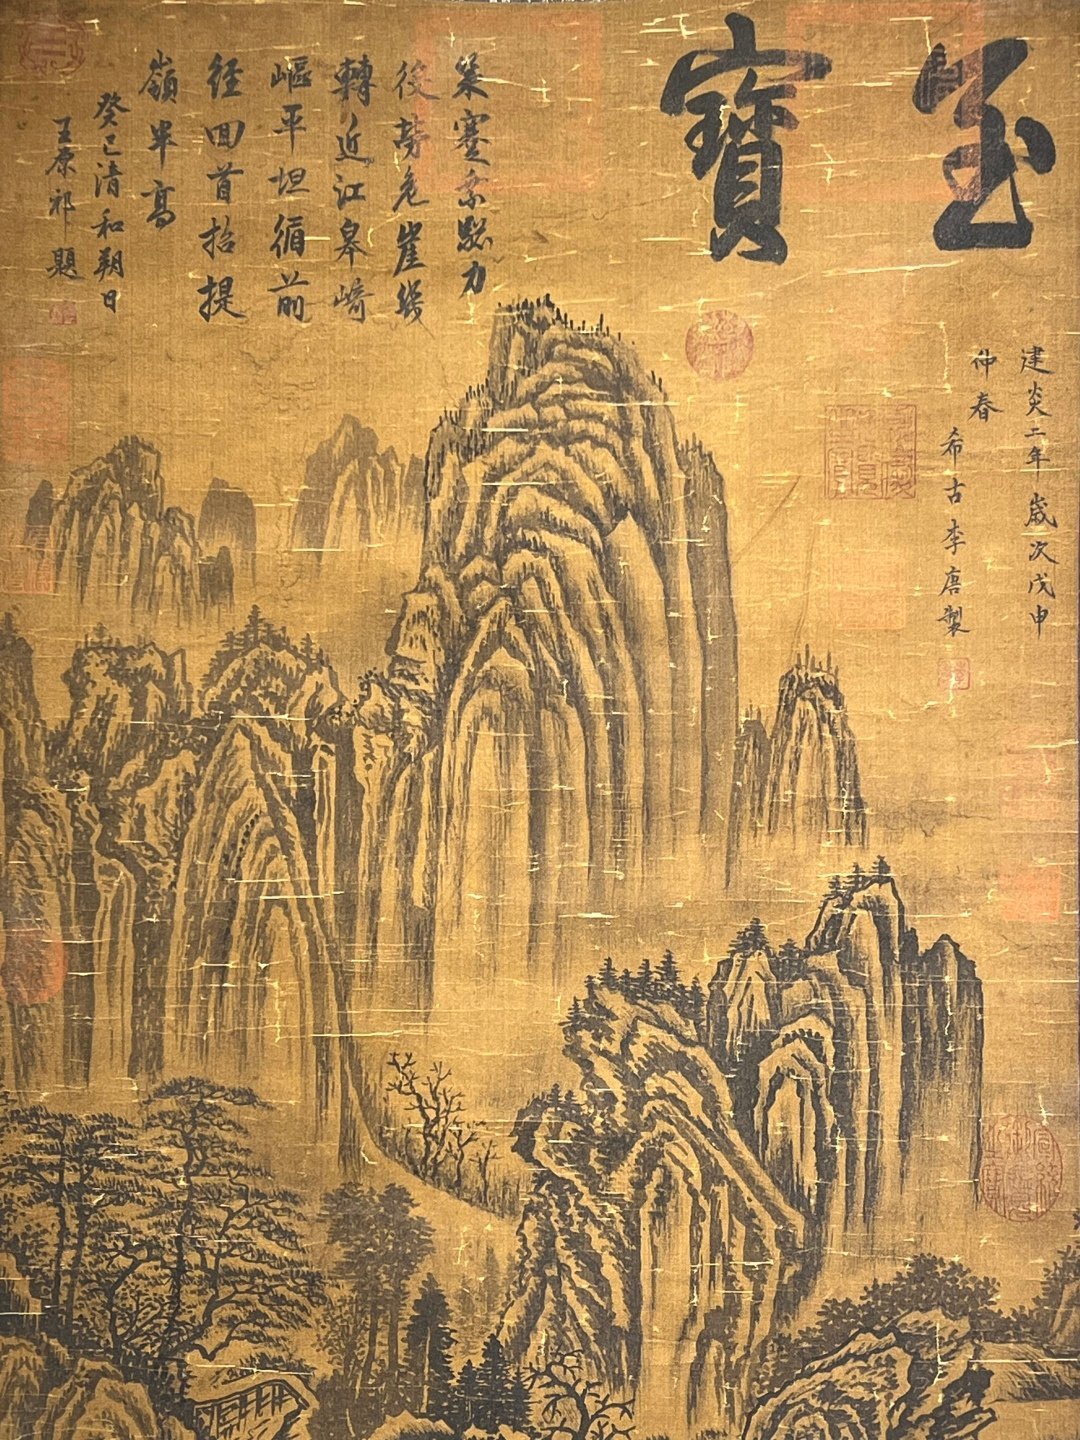 至寶
建炎二年歲次戊申
仲春
希古李唐製
策蹇力
後勞危崖纔
轉近江皋崎
嶇平坦循前
徑回首招提
嶺半高
癸巳清和朔日
王原祁題